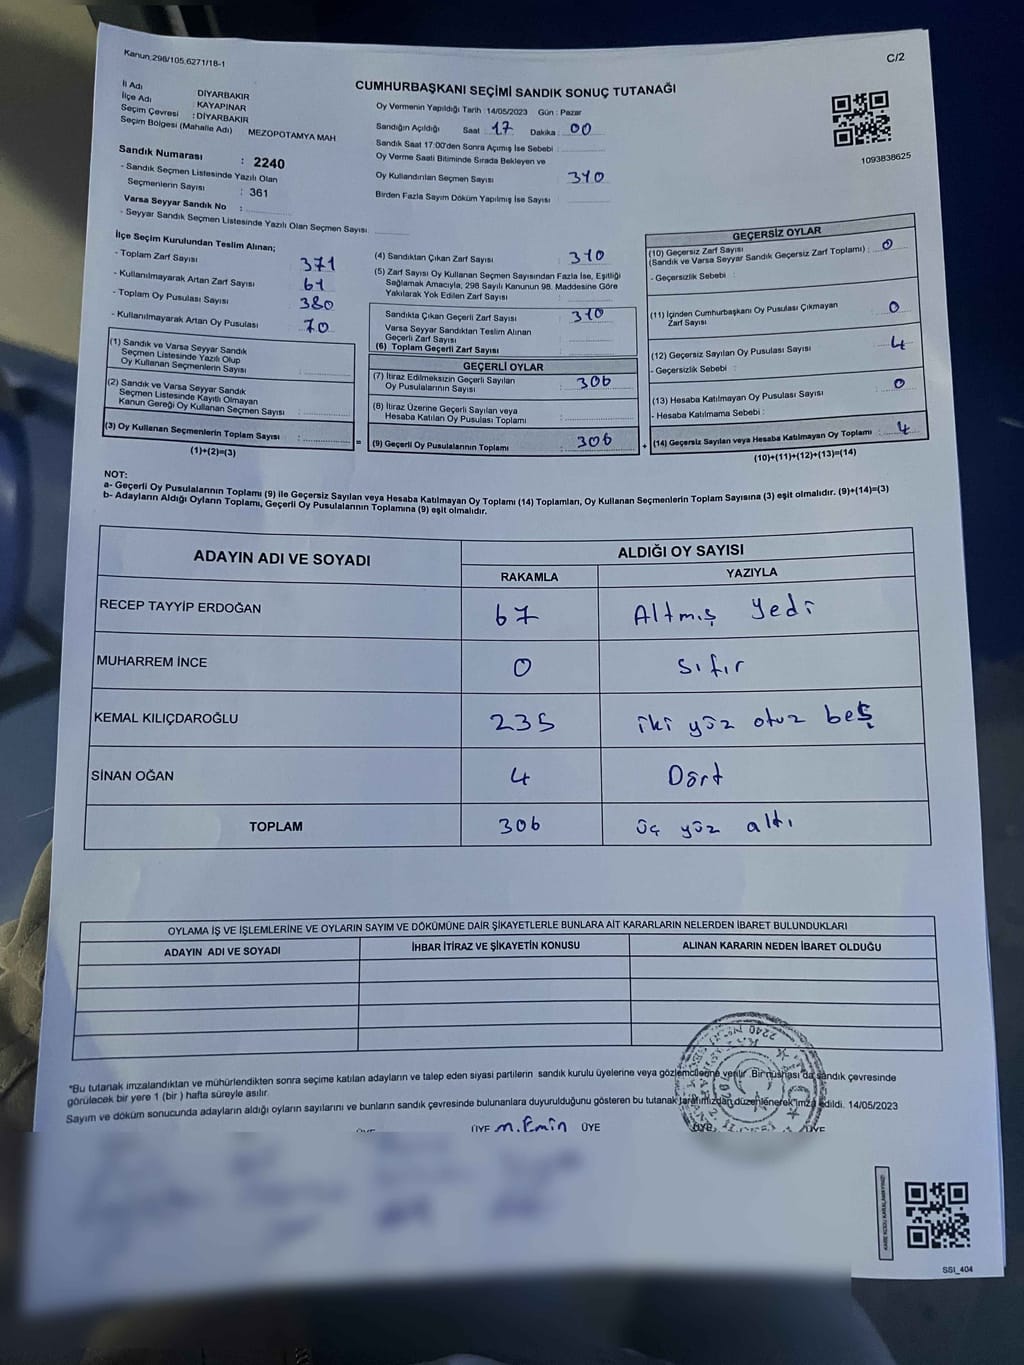 Kanun;298/105,6271/18-1
C/2
CUMHURBAŞKANI SEÇİMİ SANDIK SONUÇ TUTANAĞI
İl Adı DİYARBAKIR
İlçe Adı : KAYAPINAR
Seçim Çevresi : DİYARBAKIR
Seçim Bölgesi (Mahalle Adı) MEZOPOTAMYA MAH
Sandık Numarası : 2240
- Sandık Seçmen Listesinde Yazılı Olan
Seçmenlerin Sayısı : 361
Varsa Seyyar Sandık No :
- Seyyar Sandık Seçmen Listesinde Yazılı Olan Seçmen Sayısı
Oy Vermenin Yapıldığı Tarih : 14/05/2023 Gün : Pazar
Sandığın Açıldığı Saat : 17 Dakika : 00
Sandık Saat 17:00'den Sonra Açımış İse Sebebi :
Oy Verme Saati Bitiminde Sırada Bekleyen ve
Oy Kullandırılan Seçmen Sayısı 310
Birden Fazla Sayım Döküm Yapılmış İse Sayısı
1093838625
İlçe Seçim Kurulundan Teslim Alınan;
- Toplam Zarf Sayısı 371
- Kullanılmayarak Artan Zarf Sayısı 61
- Toplam Oy Pusulası Sayısı 380
- Kullanılmayarak Artan Oy Pusulası 70
(1) Sandık ve Varsa Seyyar Sandık
Seçmen Listesinde Yazılı Olup
Oy Kullanan Seçmenlerin Sayısı :
(2) Sandık ve Varsa Seyyar Sandık
Seçmen Listesinde Kayıtlı Olmayan
Kanun Gereği Oy Kullanan Seçmen Sayısı :
(3) Oy Kullanan Seçmenlerin Toplam Sayısı :
(1)+(2)=(3)
=
(4) Sandıktan Çıkan Zarf Sayısı 310
(5) Zarf Sayısı Oy Kullanan Seçmen Sayısından Fazla İse, Eşitliği
Sağlamak Amacıyla, 298 Sayılı Kanunun 98. Maddesine Göre
Yakılarak Yok Edilen Zarf Sayısı
Sandıkta Çıkan Geçerli Zarf Sayısı : 310
Varsa Seyyar Sandıktan Teslim Alınan
Geçerli Zarf Sayısı
(6) Toplam Geçerli Zarf Sayısı
GEÇERLİ OYLAR
(7) İtiraz Edilmeksizin Geçerli Sayılan
Oy Pusulalarının Sayısı : 306
(8) İtiraz Üzerine Geçerli Sayılan veya
Hesaba Katılan Oy Pusulası Toplamı :
(9) Geçerli Oy Pusulalarının Toplamı : 306
+
GEÇERSİZ OYLAR
(10) Geçersiz Zarf Sayısı
(Sandık ve Varsa Seyyar Sandık Geçersiz Zarf Toplamı) : 0
- Geçersizlik Sebebi :
(11) İçinden Cumhurbaşkanı Oy Pusulası Çıkmayan
Zarf Sayısı 0
(12) Geçersiz Sayılan Oy Pusulası Sayısı 4
- Geçersizlik Sebebi :
(13) Hesaba Katılmayan Oy Pusulası Sayısı 0
- Hesaba Katılmama Sebebi :
(14) Geçersiz Sayılan veya Hesaba Katılmayan Oy Toplamı : 4
(10)+(11)+(12)+(13)=(14)
NOT:
a- Geçerli Oy Pusulalarının Toplamı (9) ile Geçersiz Sayılan veya Hesaba Katılmayan Oy Toplamı (14) Toplamları, Oy Kullanan Seçmenlerin Toplam Sayısına (3) eşit olmalıdır. (9)+(14)=(3)
b- Adayların Aldığı Oyların Toplamı, Geçerli Oy Pusulalarının Toplamına (9) eşit olmalıdır.
ADAYIN ADI VE SOYADI
ALDIĞI OY SAYISI
RAKAMLA YAZIYLA
RECEP TAYYİP ERDOĞAN 67 Altmış Yedi
MUHARREM İNCE 0 Sıfır
KEMAL KILIÇDAROĞLU 235 iki yüz otuz beş
SİNAN OĞAN 4 Dört
TOPLAM 306 üç yüz altı
OYLAMA İŞ VE İŞLEMLERİNE VE OYLARIN SAYIM VE DÖKÜMÜNE DAİR ŞİKAYETLERLE BUNLARA AİT KARARLARIN NELERDEN İBARET BULUNDUKLARI
ADAYIN ADI VE SOYADI İHBAR İTİRAZ VE ŞİKAYETİN KONUSU ALINAN KARARIN NEDEN İBARET OLDUĞU
*Bu tutanak imzalandıktan ve mühürlendikten sonra seçime katılan adayların ve talep eden siyasi partilerin sandık kurulu üyelerine veya gözlemcilerine verilir. Bir nushası da sandık çevresinde
görülecek bir yere 1 (bir ) hafta süreyle asılır.
Sayım ve döküm sonucunda adayların aldığı oyların sayılarını ve bunların sandık çevresinde bulunanlara duyurulduğunu gösteren bu tutanak tarafımızdan düzenlenerek imza edildi. 14/05/2023
ÜYE M. Emin ÜYE ÜYE ÜYE
2240 No
SSI_404